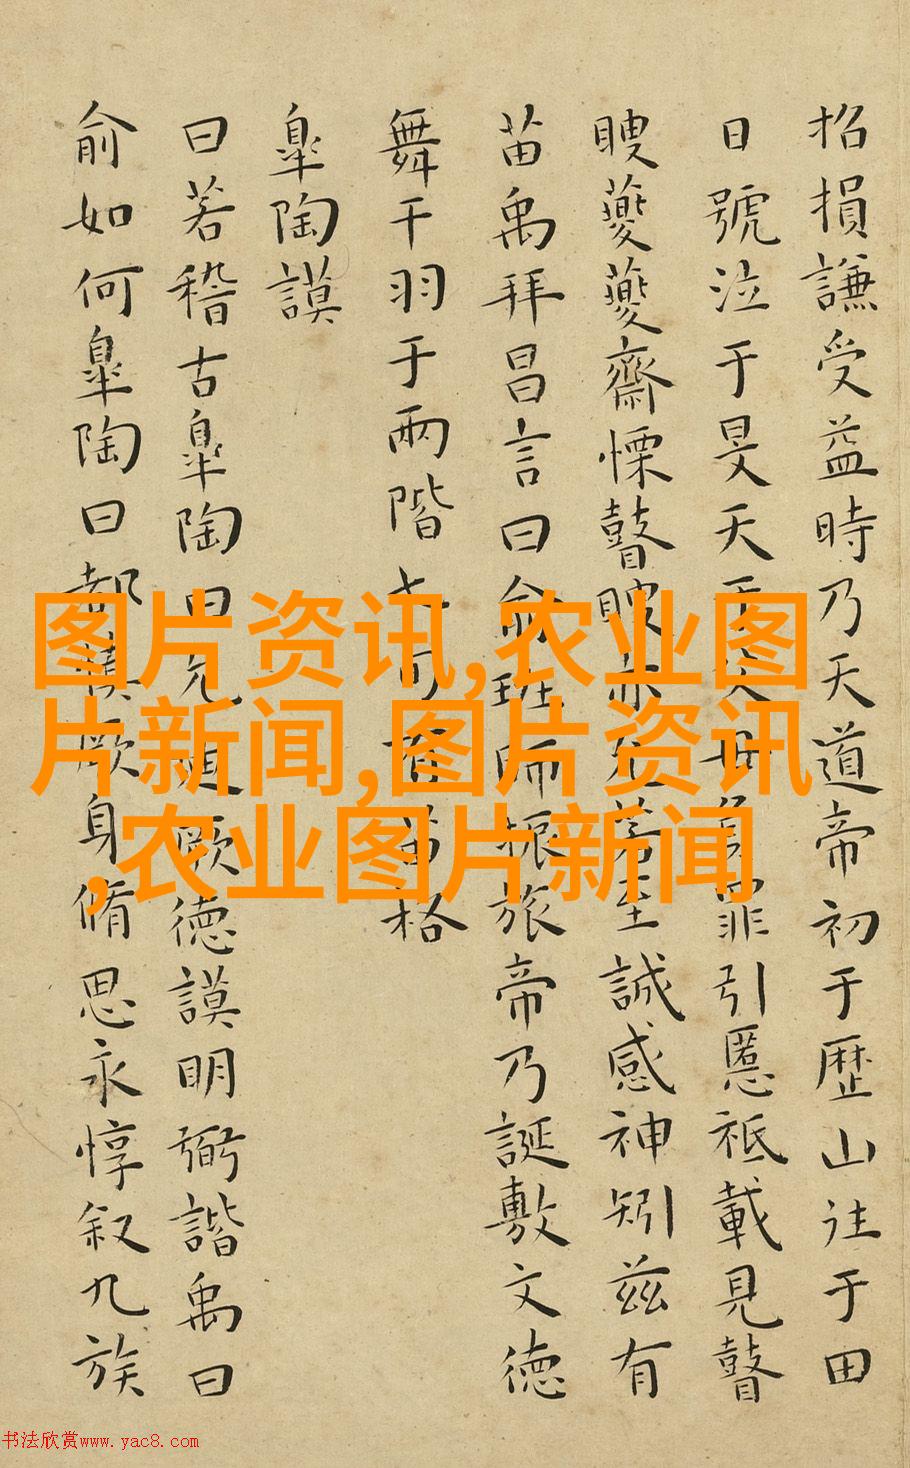 招損謙受益時乃天道帝初于歴山往于田
日號泣于旻天于父母負罪引慝祗載見瞽
瞍夔夔齋慄瞽瞍亦允若至誠感神矧兹有
苗禹拜昌言曰俞班師振旅帝乃誕敷文德
舞干羽于兩階七旬有苗格
皐陶謨
曰若稽古皐陶曰允迪厥德謨明弼諧禹曰
俞如何皐陶曰都慎厥身脩思永惇叙九族
图片资讯,农业图
片新闻,图片资讯
,农业图片新闻
书法欣赏www.yac8.com